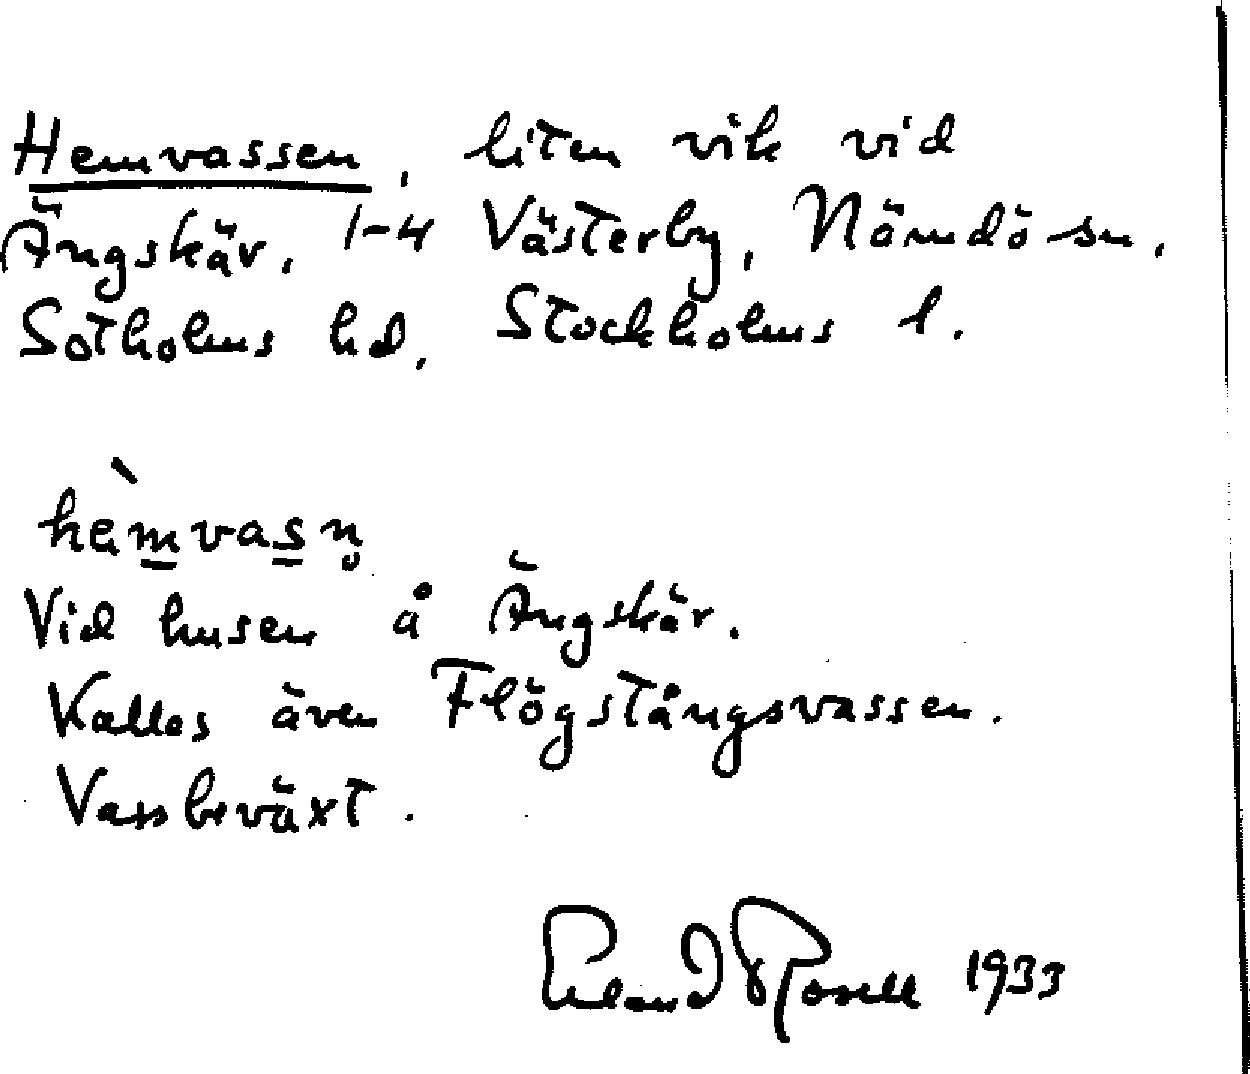 Hemvassen, liten vik vid
Ängskär, 1-4 Västerby, Nämdö sn,
Sotholms hd, Stockholms l.
hèm̲vas̲n̥
Vid husen å Ängskär.
Kallas även Flögstångsvassen.
Vassbeväxt.
Erland Rosell 1933